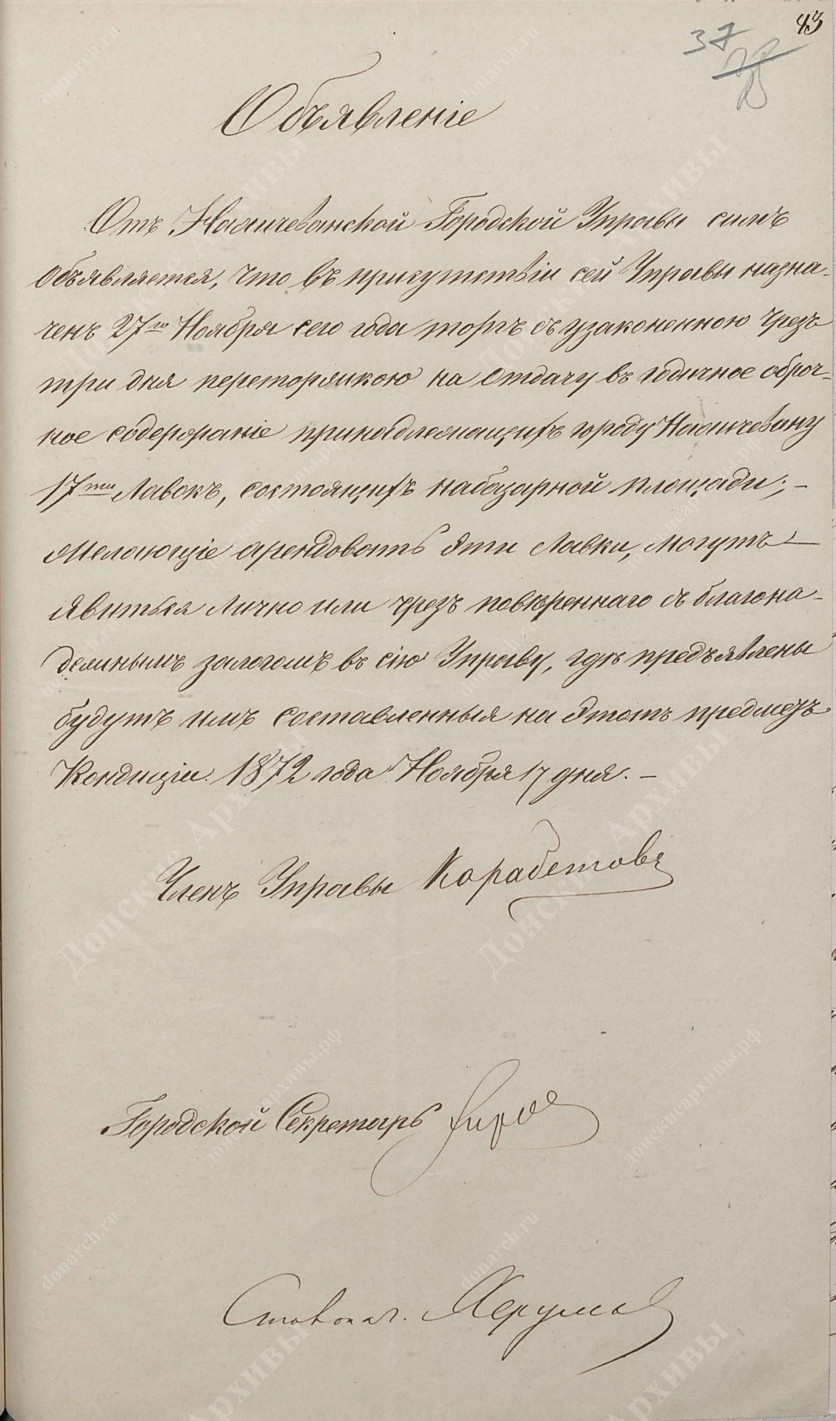 43
37
Объявленіе
Отъ Нахичеванской Городской Управы симъ
объявляется, что въ присутствіи сей Управы назна-
ченъ 27го Ноября сего года торгъ съ узаконенною чрезъ
три дня переторжкою на отдачу въ годичное оброч-
ное содержаніе принадлежащихъ городу Нахичевану
17ти Лавокъ, состоящихъ на базарной площади; –
Желающіе арендовать эти Лавки, могутъ –
явиться Лично или чрезъ повѣреннаго съ благона-
дежнымъ залогомъ въ сію Управу, гдѣ предъявлены
будутъ имъ составленныя на этотъ предметъ
Кондиціи. 1872 года Ноября 17 дня. –
Членъ Управы Карабетовъ
Городской Секретарь
Столонач.